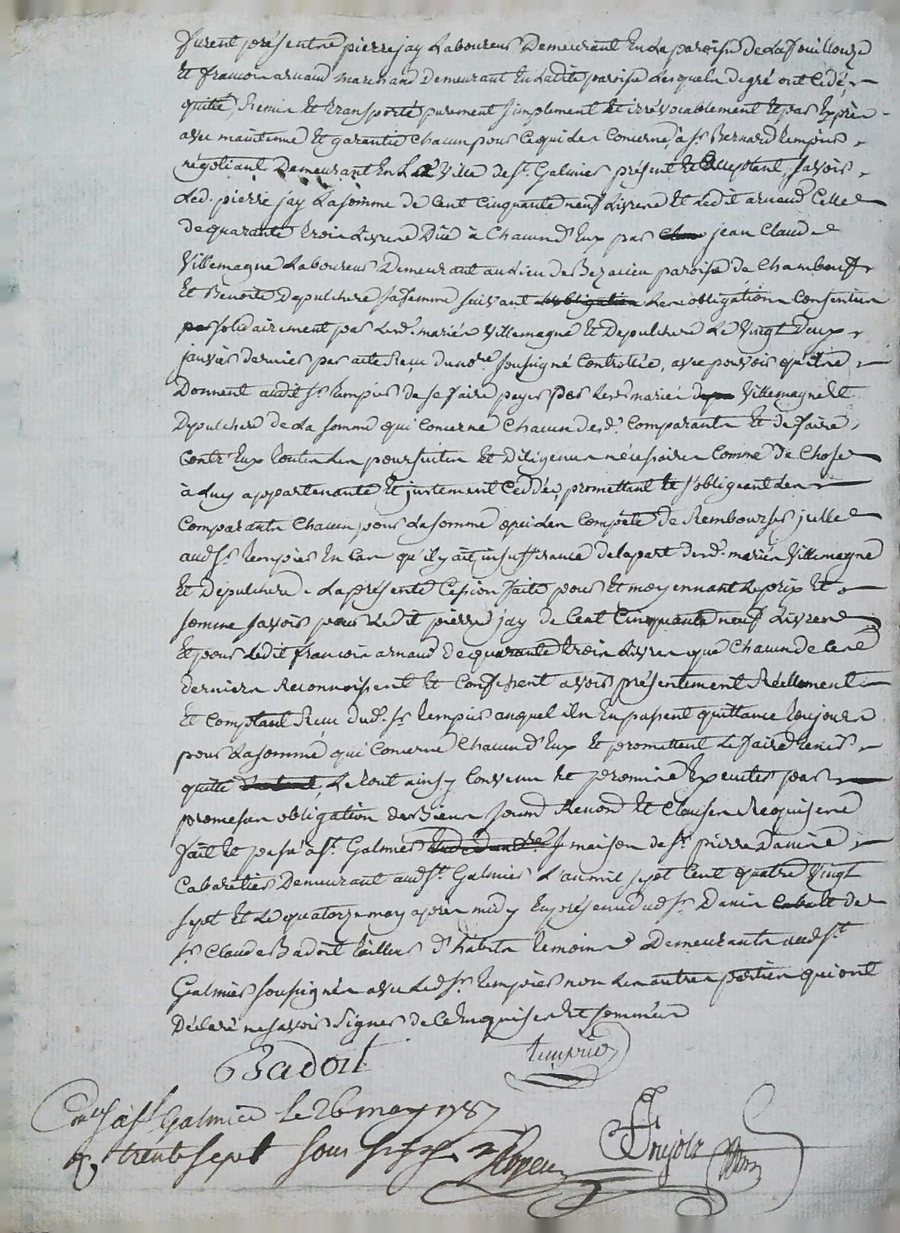 Furent présent ne pierre jay Laboureur Demeurant En La paroisse de La fouillouze
Et francois arnaud marchand Demeurant En Ladite paroisse Lesquels de gré ont Cédé,
quitté, Remis Et transporté purement simplement Et irrévocablement Et par Exprès
avec maintenue Et garantie Chacun pour Ce qui Les Concerne à sr. Bernard tempier
négotiant Demeurant En La Ville de st. Galmier présent Et acceptant, savoir
Led. pierre jay La somme de Cent Cinquante neuf Livres Et Ledit arnaud Celle
de quarante trois Livres Dûe à Chacun d'Eux par jean Claude
Villemagne Laboureur Demeurant au Lieu de Bezacieu paroisse de Chambœuf
Et Benoite Depulchere sa femme suivant Les obligations Consenties
solidairement par Lesd. mariés Villemagne Et Depulchere Le Vingt Deux
janvier dernier par acte Recu du nore. soussigné Controllée, avec pouvoir qu'ils
Donnent audit sr. tempier de se faire payer par Lesd. mariés Villemagne Et
Depulchere de La somme qui Concerne Chacun desd. Comparants Et de faire
Contr'Eux toutes Les poursuites Et Diligences nécessaires Comme de Chose
à Luy appartenante Et justement Ceddée, promettant Et s'obligeant Les
Comparants Chacun pour La somme qui Les Compete de Rembourser jcelle
aud. sr. tempier En Cas qu'il y ait insuffisance de La part desd. mariés Villemagne
Et Depulchere. La présente Cession faite pour Et moyennant Le prix Et
somme savoir pour Ledit pierre jay de Cent Cinquante neuf Livres
Et pour Ledit francois arnaud de quarante trois Livres que Chacun de Ces
derniers Reconnoissent Et Confessent avoir présentement Réellement
Et Comptant Recu dud. sr. tempier auquel ils En passent quittance toujours
pour La somme qui Concerne Chacun d'Eux Et promettent Le faire tenir
quitte, Le tout ainsy Convenu Et promis Exécuter par
promesses obligation de Biens soumd Renond Et Clauses Requises
fait Et passé à st. Galmier maison de sr. pierre Danier
Cabaretier Demeurant aud. st. Galmier L'an mil sept Cent quatre Vingt
sept Et Le quatorze may après midy En présence dud. sr. Danier Et de
sr. Claude Badoit tailleur d'habits temoins Demeurants aud. st.
Galmier soussignés avec Led. sr. tempier non Les autres parties qui ont
Déclaré ne savoir signer de Ce Enquises Et sommées
Badoit tempier
Conllé à st Galmier le 26 may 1787
trente sept sous six